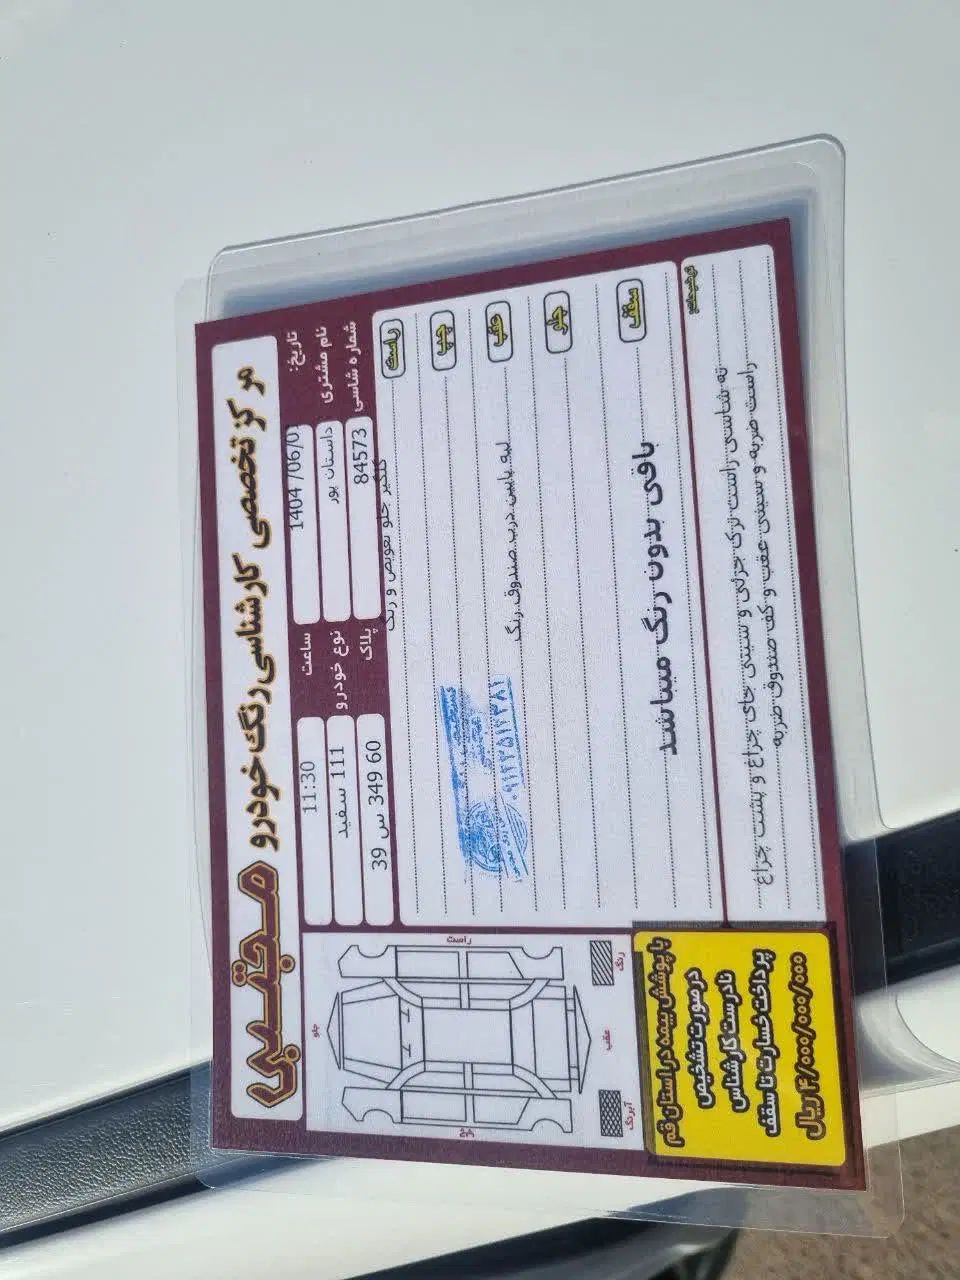 مرکز تخصصی کارشناسی رنگ خودرو
مجتبی
تاریخ:
1404/06/0
ساعت
11:30
نام مشتری
داستان پور
نوع خودرو
111 سفید
شماره شاسی
84573
پلاک
60 349 س 39
راست
گلگیر جلو تعویض و رنگ
چپ
عقب
لبه پایین درب صندوق رنگ
جلو
سقف
باقی بدون رنگ میباشد
ته شاسی راست ترک جزئی و سینی جای چراغ و پشت چراغ
راست ضربه و سینی عقب و کف صندوق ضربه
راست
جلو
عقب
چپ
رنگ
آبرنگ
با پوشش بیمه در استان قم
در صورت تشخیص
نادرست کارشناس
پرداخت خسارت تا سقف
۴/۰۰۰/۰۰۰/۰۰۰ ریال